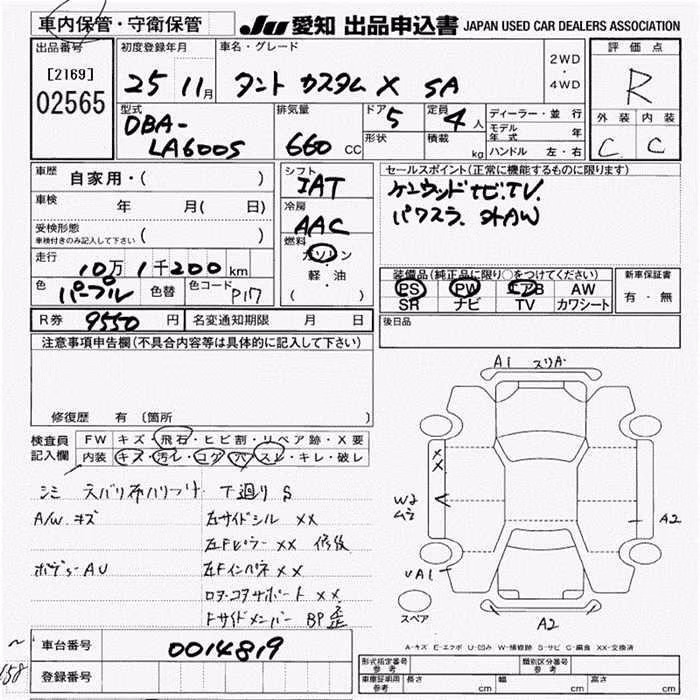 車内保管・守衛保管
JU 愛知 出品申込書 JAPAN USED CAR DEALERS ASSOCIATION
出品番号
[2169]
02565
初度登録年月
25 11月
車名・グレード
タント カスタム X SA
2WD
・
4WD
評価点
R
外装 内装
C C
型式
DBA-
LA600S
排気量
660 CC
ドア
5
形状
定員
4人
積載
kg
ディーラー・並行
モデル年式 年
ハンドル 左・右
車歴
自家用・( )
車検
年 月( 日)
受検形態
車検付きのみ記入して下さい ( )
走行
10万1千200km
色
パープル
色替
色コード P17
シフト
IAT
冷房
AAC
燃料
ガソリン
・
軽油
( )
セールスポイント(正常に機能するものに限ります)
ケンウッドナビ.TV.
パワスラ. 外AW
装備品(純正品に限り○をつけてください)
PS PW エアB AW
SR ナビ TV カワシート
新車保証書
有・無
R券 9550 円
名変通知期限 月 日
後日品
注意事項申告欄(不具合内容等は具体的に記入して下さい)
修復歴 有 (箇所
検査員
記入欄
FW キズ・飛石・ヒビ割・リペア跡・X要
内装 キズ・汚レ・コゲ・穴・スレ・キレ・破レ
シミ 天バリ布ハリつけ 下廻りS
A/W.キズ 左サイドシル XX
左Fピラー XX 修後
ボデーAU 左Fインパネ XX
ロア・コアサポート XX
Fサイドメンバー BP歪
A1 スリA
XX
W2
ムラ
A2
UA1
スペア
A2
A-キズ E-エクボ U-凹み W-補修跡 S-サビ C-腐食 XX-交換済
車台番号
0014819
登録番号
~
158
形式指定番号
参考
類別区分番号
参考
車庫証明用
参考
長さ cm 幅 cm 高さ cm